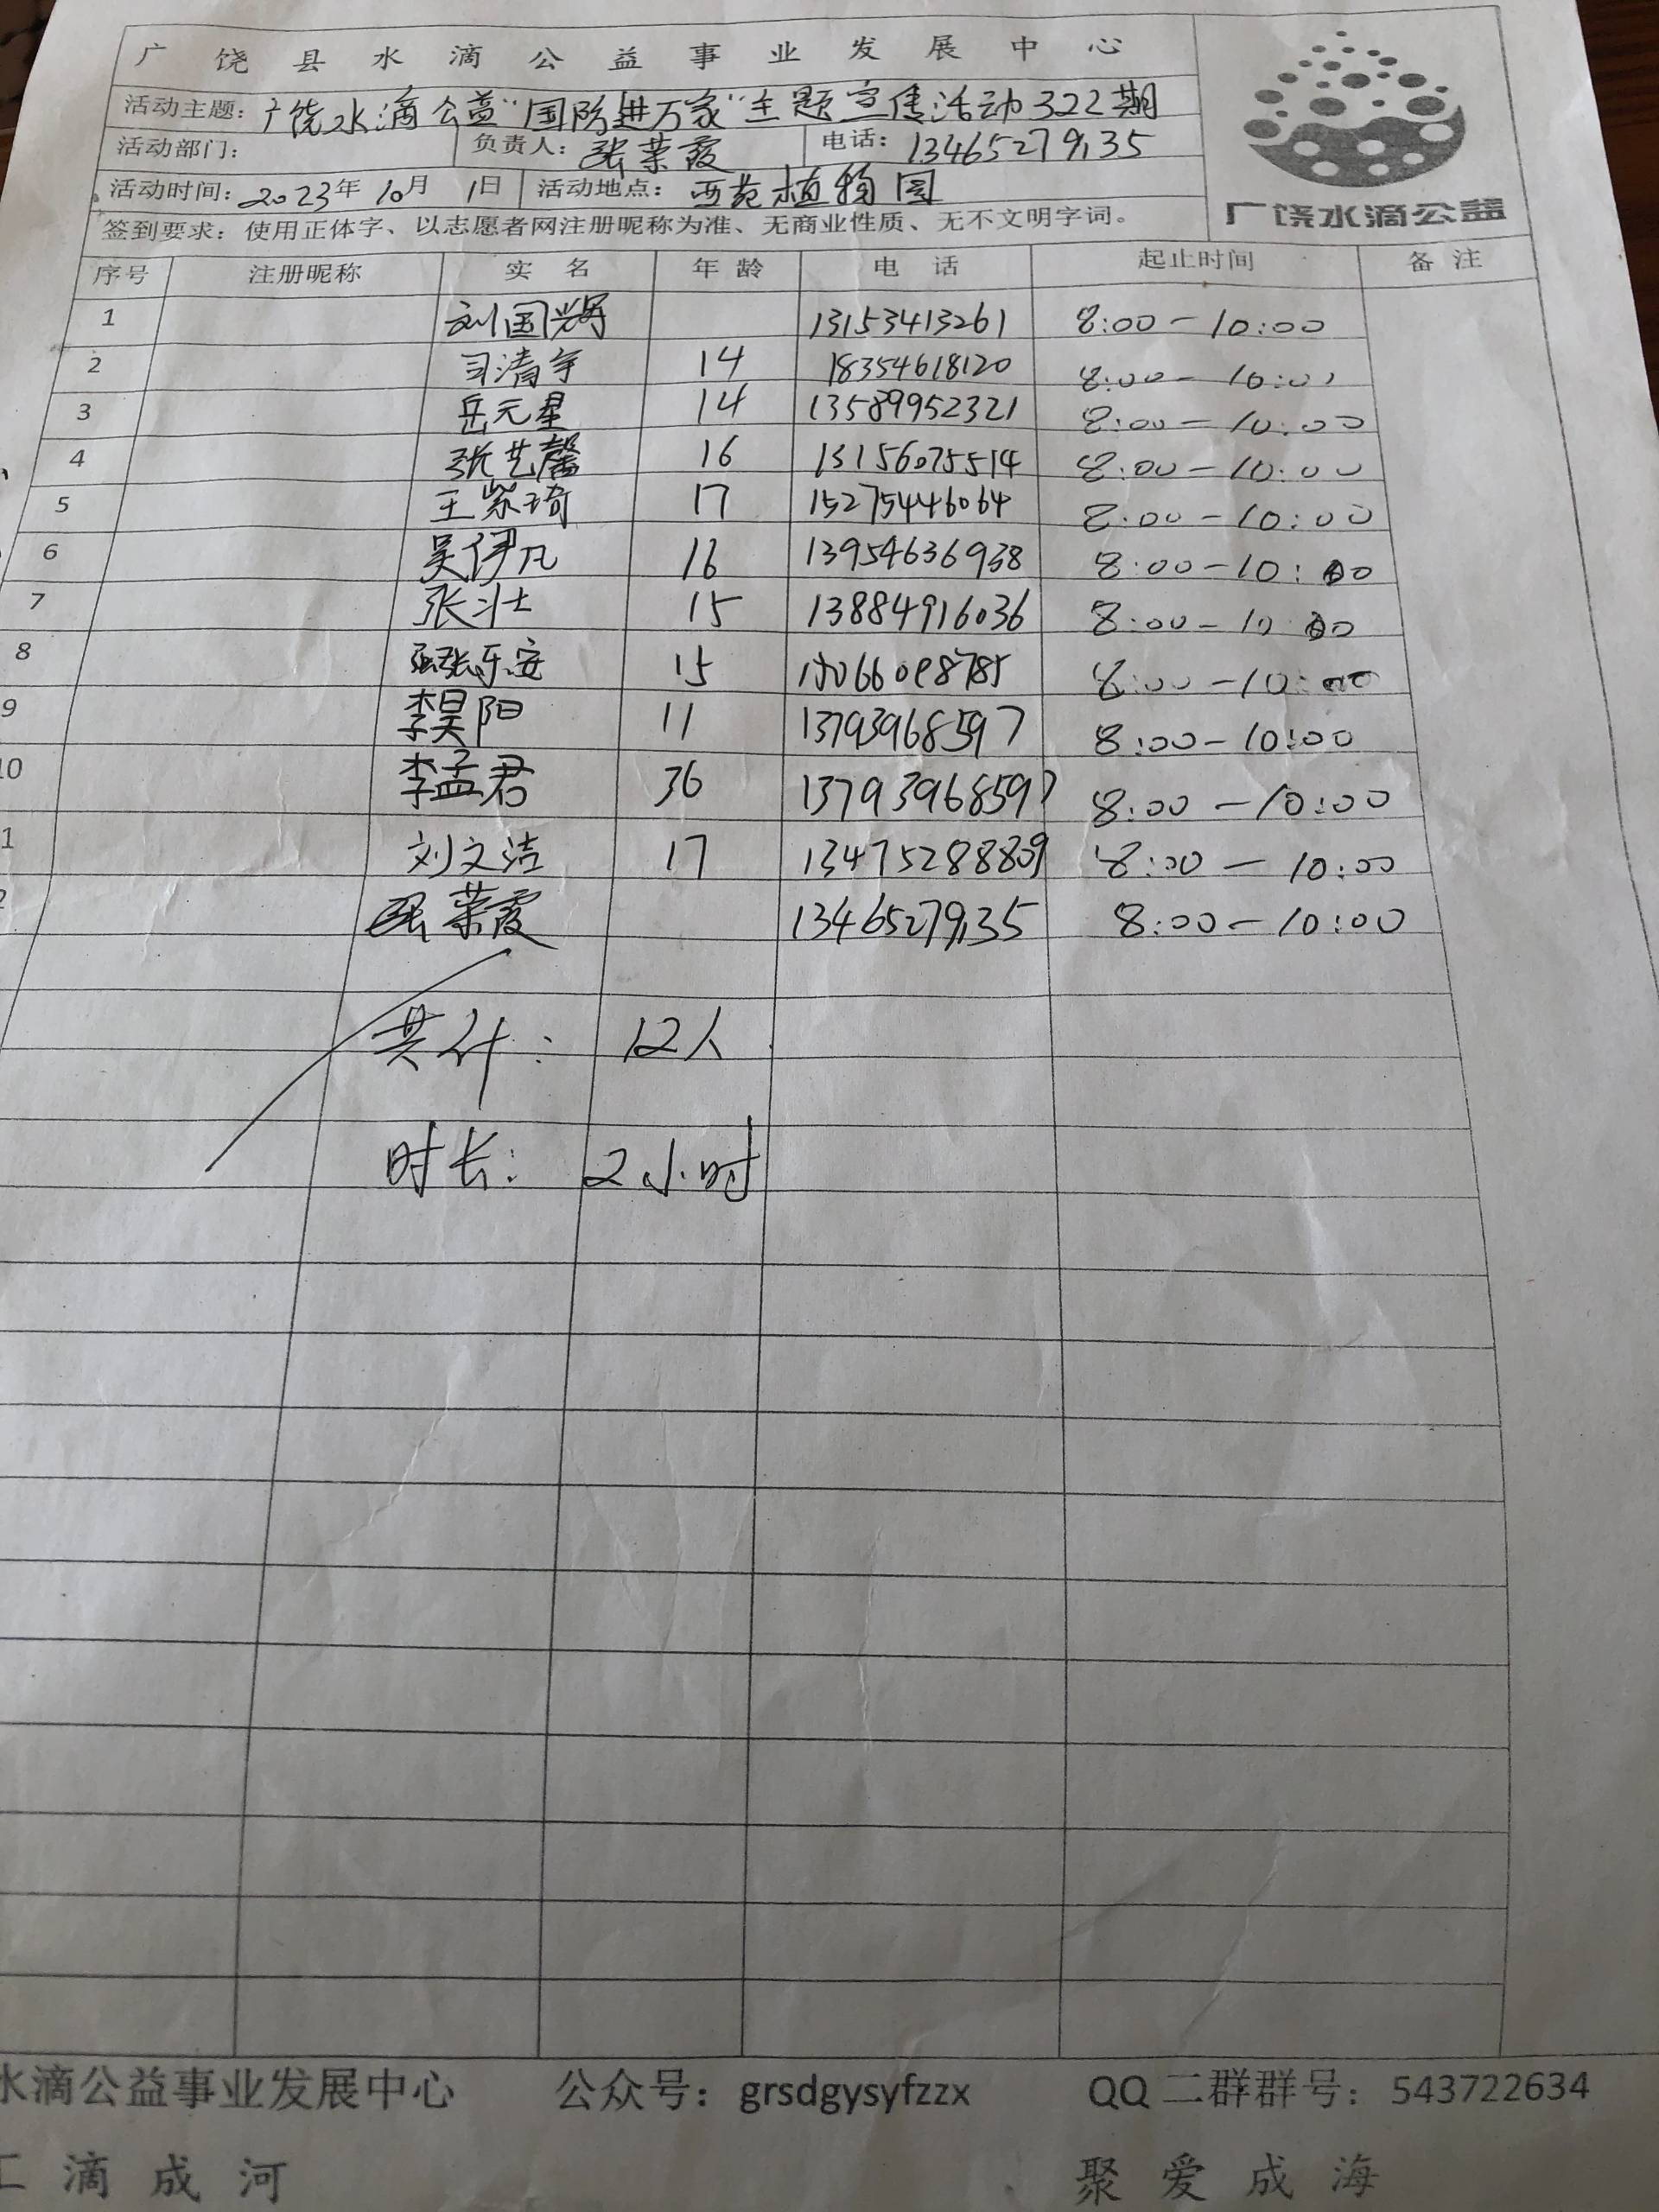 广饶县水滴公益事业发展中心
活动主题：广饶水滴公益“国防进万家”主题宣传活动322期
活动部门： 负责人：张荣霞 电话：13465279135
活动时间：2023年10月1日 活动地点：西苑植物园
签到要求：使用正体字、以志愿者网注册昵称为准、无商业性质、无不文明字词。
广饶水滴公益
序号 注册昵称 实名 年龄 电话 起止时间 备注
1 刘国兴 13153413261 8:00-10:00
2 司清宇 14 18354618120 8:00-10:00
3 岳元星 14 13589952321 8:00-10:00
4 张艺馨 16 13156075514 8:00-10:00
5 王紫琦 17 15275446064 8:00-10:00
6 吴伊凡 16 13954636938 8:00-10:00
7 张壮 15 13884916036 8:00-10:00
8 张乐安 15 8:00-10:00
9 李昊阳 11 13793968597 8:00-10:00
10 李孟君 36 13793968597 8:00-10:00
1 刘文洁 17 13475288809 8:00-10:00
2 张荣霞 13465279135 8:00-10:00
共计：12人
时长：2小时
水滴公益事业发展中心 公众号：grsdgysyfzzx QQ二群群号：543722634
汇滴成河 聚爱成海